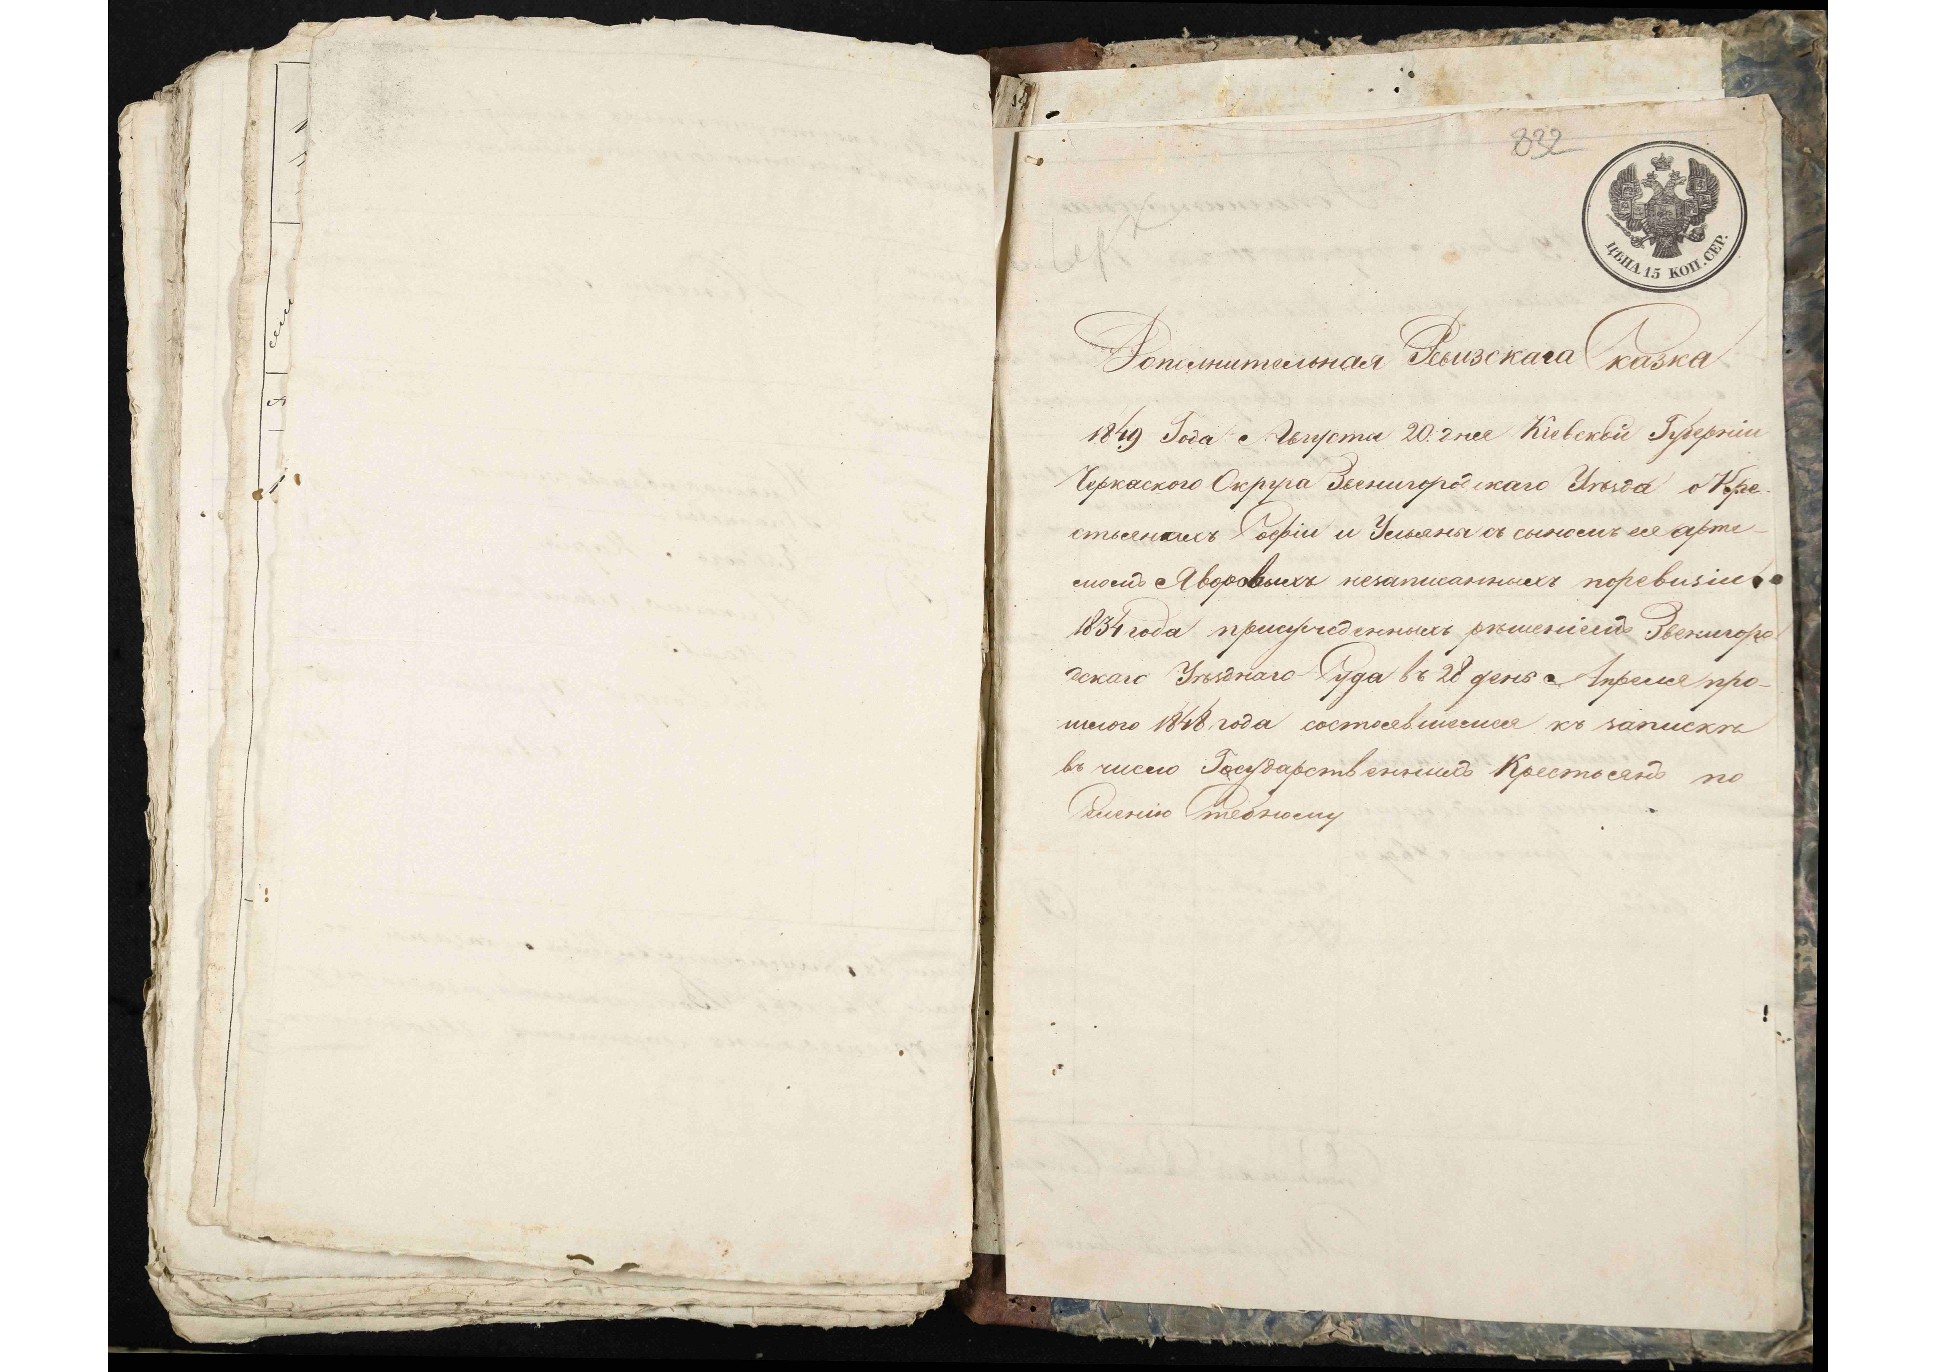 832
ЦѢНА 15 КОП. СЕР.
Дополнительная Ревизскага Сказка
1849 Года Августа 20. дня Кіевской Губерніи
Черкаского Округа Звенигородскаго Уѣзда о Кре-
стьянахъ Софіи и Ульяны съ сыномъ ея Арте-
момъ Яворовыхъ незаписанныхъ поревизіи
1834 года присужденныхъ рѣшеніемъ Звенигоро
дскаго Уѣзднаго Суда въ 28 день Апреля про-
шлого 1848 года состоявшемся къ запискѣ
въ число Государственныхъ Крестьянъ по
Селенію Стебному